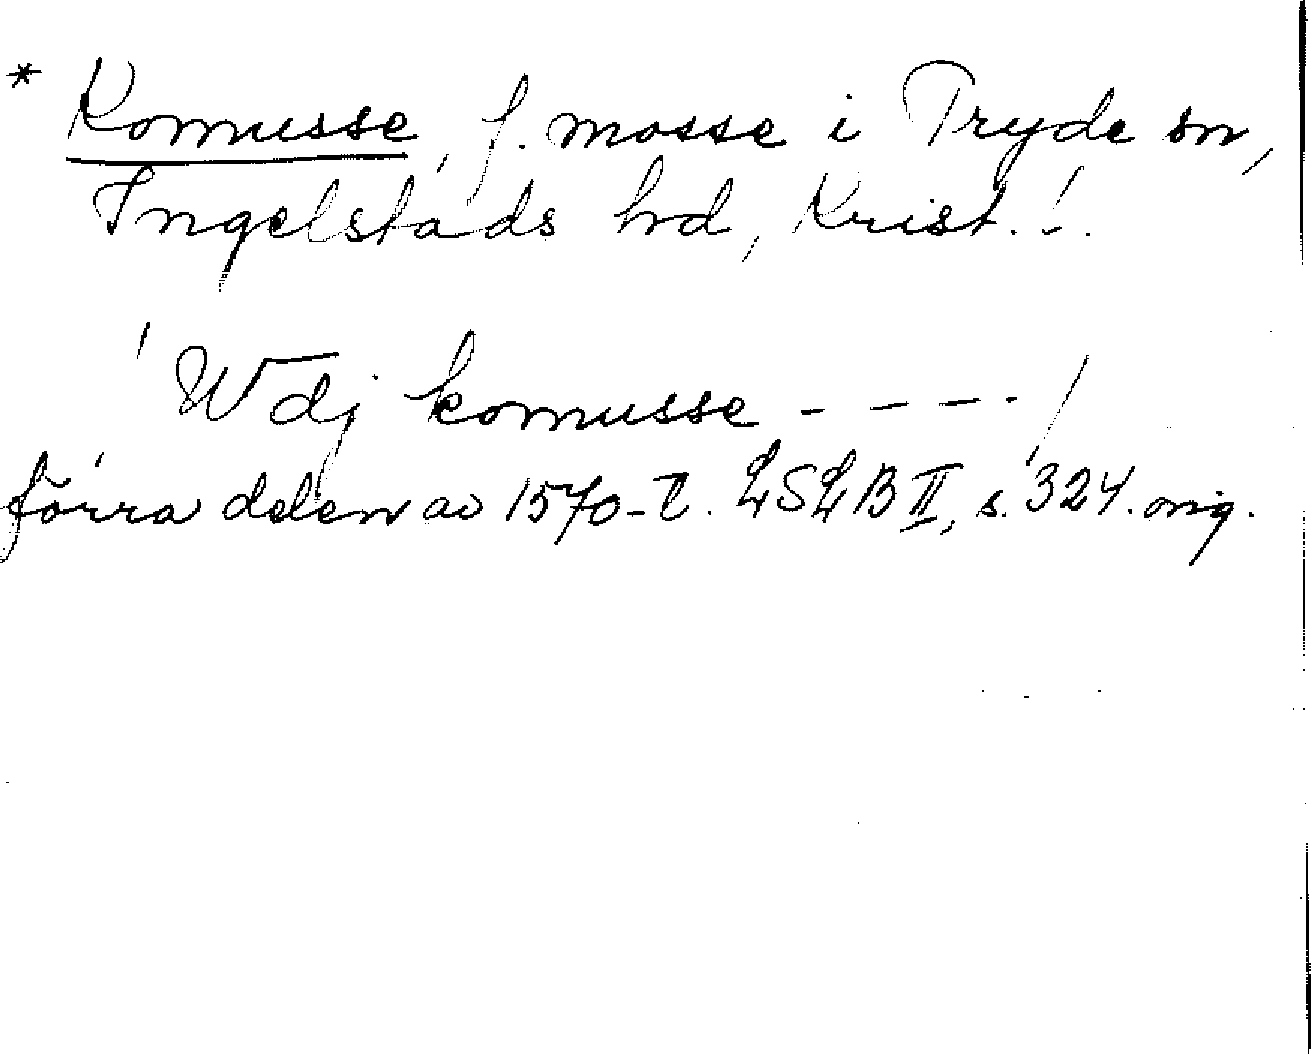 * Komusse, f. mosse i Tryde sn,
Ingelstads hd, Krist. l.
Wdj komusse - - - -
förra delen av 1570-t. LSLB II, s. 324. orig.